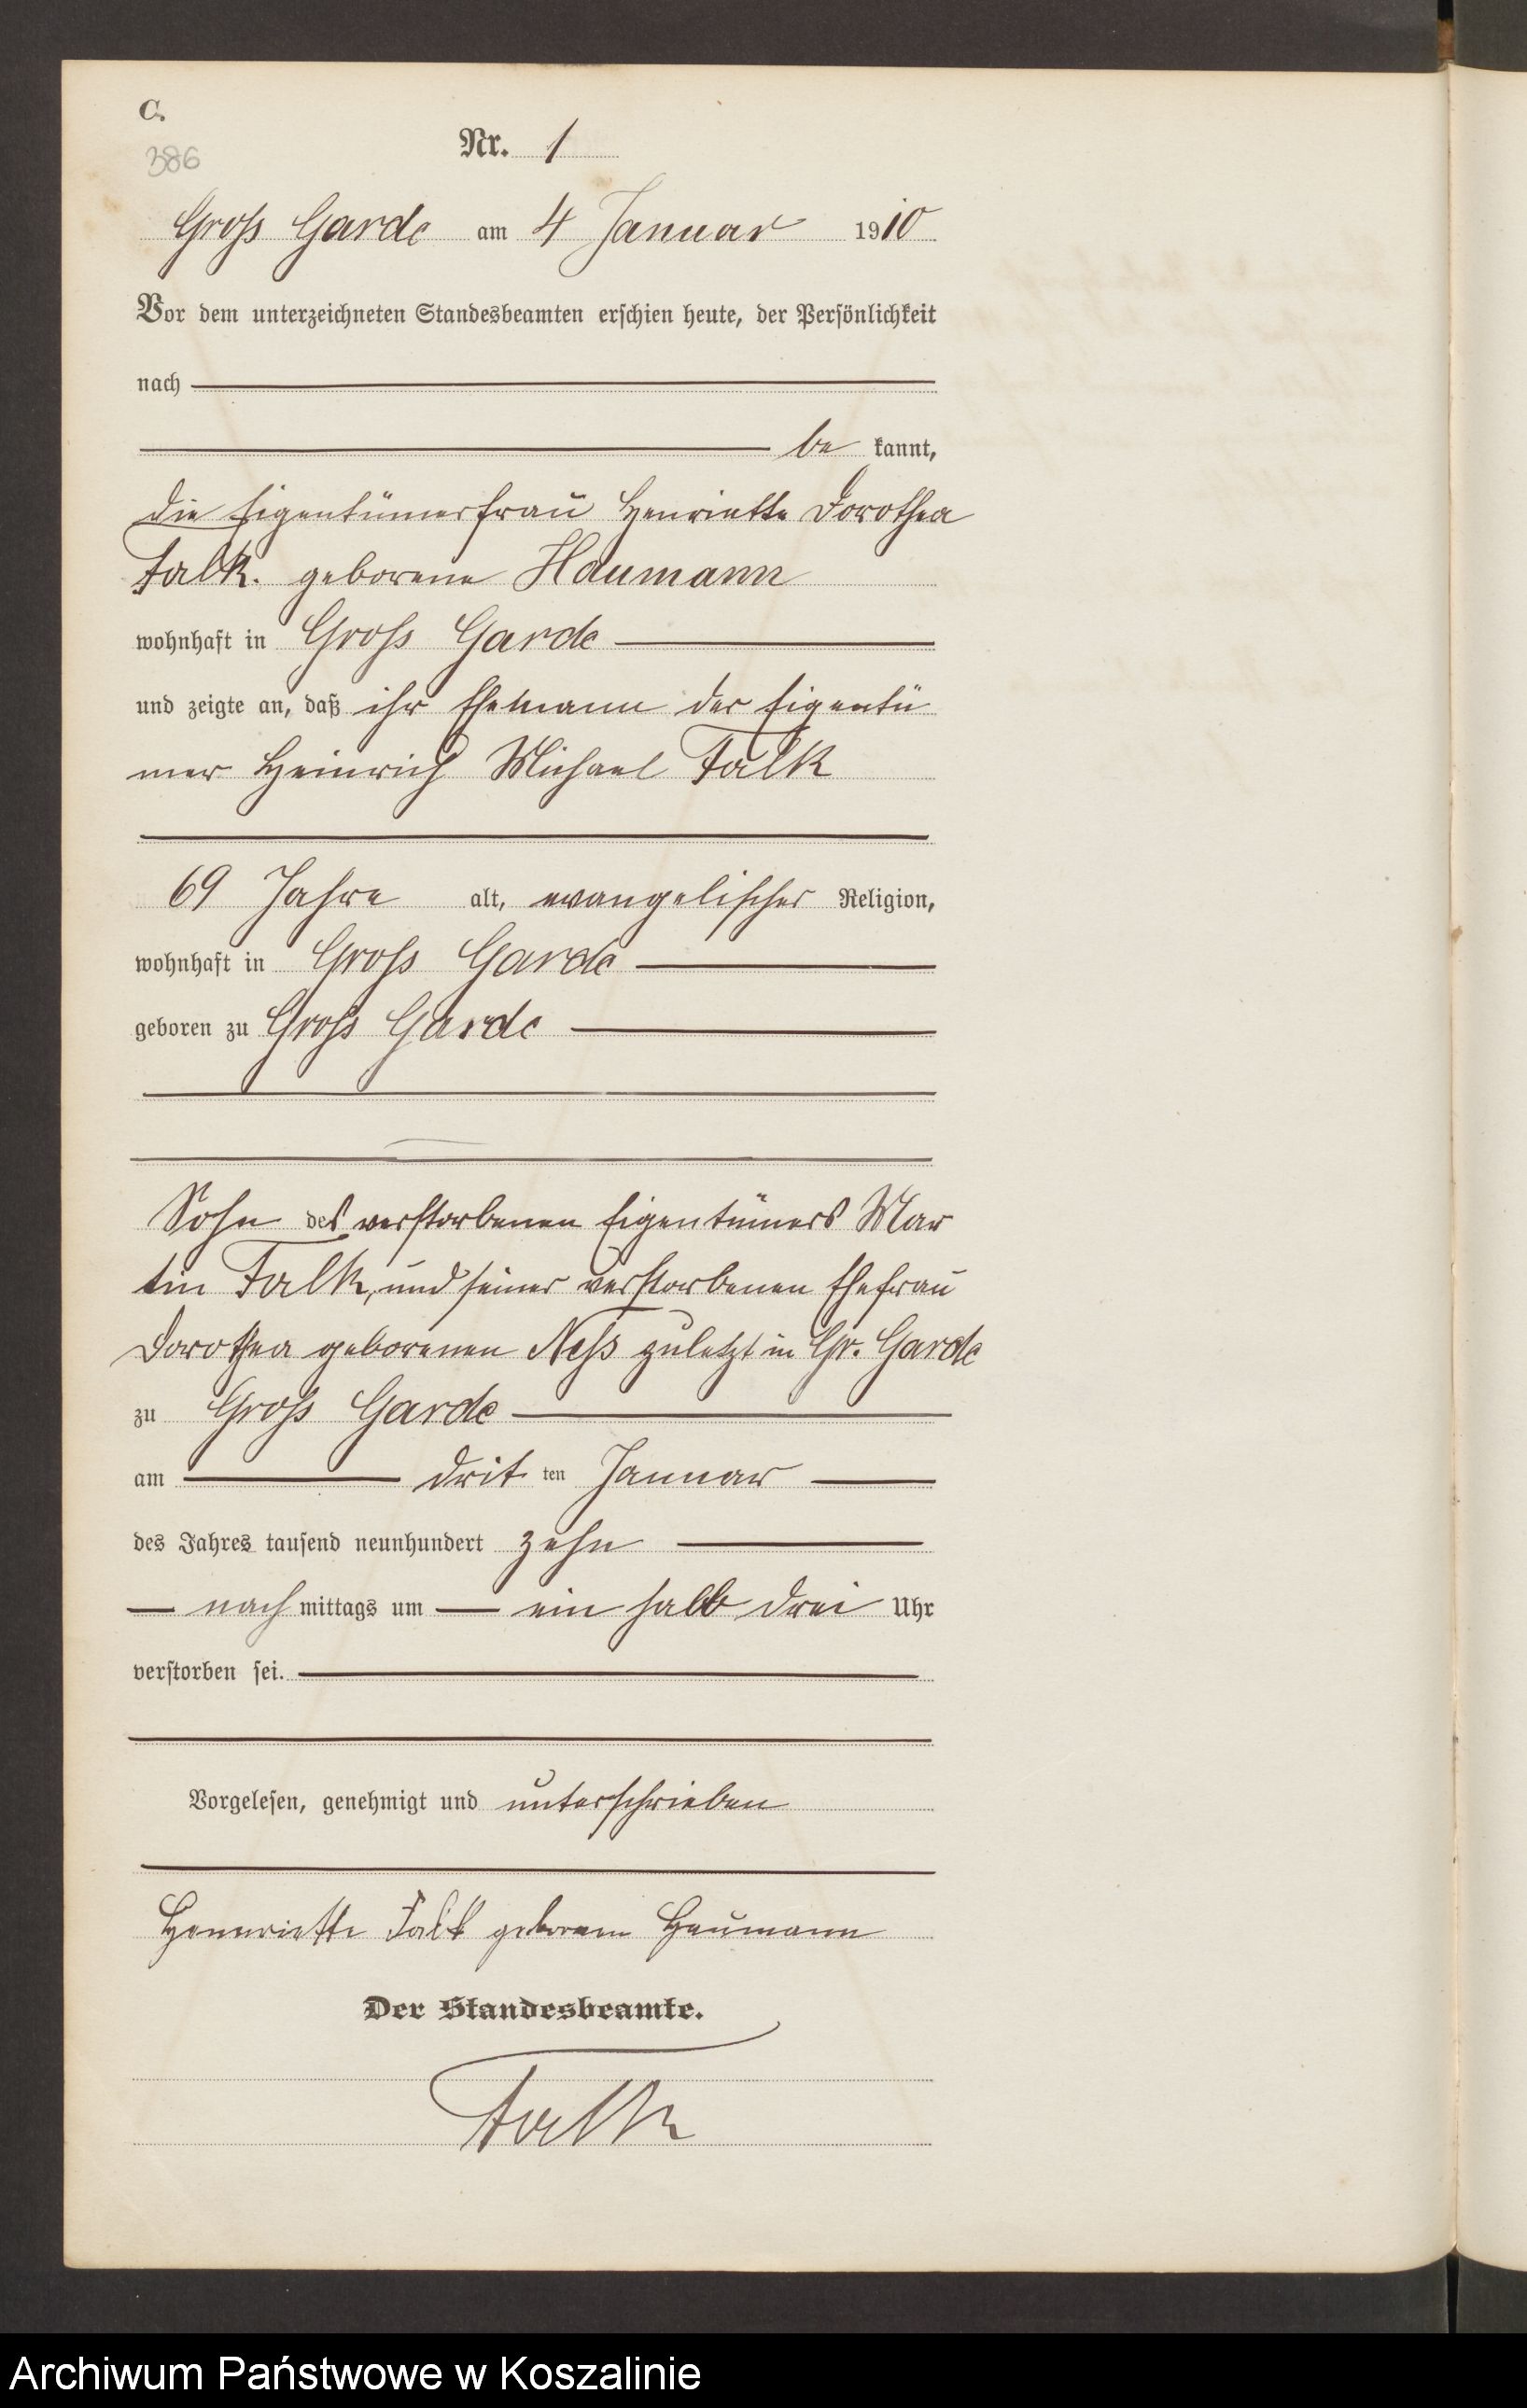 C.
386
Nr. 1
Gross Garde am 4 Januar 1910
Vor dem unterzeichneten Standesbeamten erschien heute, der Persönlichkeit
nach
be kannt,
die Eigentümerfrau Henriette Dorothea
Falk. geborene Haumann
wohnhaft in Gross Garde
und zeigte an, daß ihr Ehemann der Eigentü
mer Heinrich Michael Falk
69 Jahre alt, evangelischer Religion,
wohnhaft in Gross Garde
geboren zu Gross Garde
Sohn des verstorbenen Eigentümers Mar
tin Falk, und seiner verstorbenen Ehefrau
Dorothea geborenen Ness zuletzt in Gr. Garde
zu Gross Garde
am drit ten Januar
des Jahres tausend neunhundert zehn
nach mittags um ein halb drei Uhr
verstorben sei.
Vorgelesen, genehmigt und unterschrieben
Hennriette Falk geborenn Haumann
Der Standesbeamte.
Falk
Archiwum Państwowe w Koszalinie